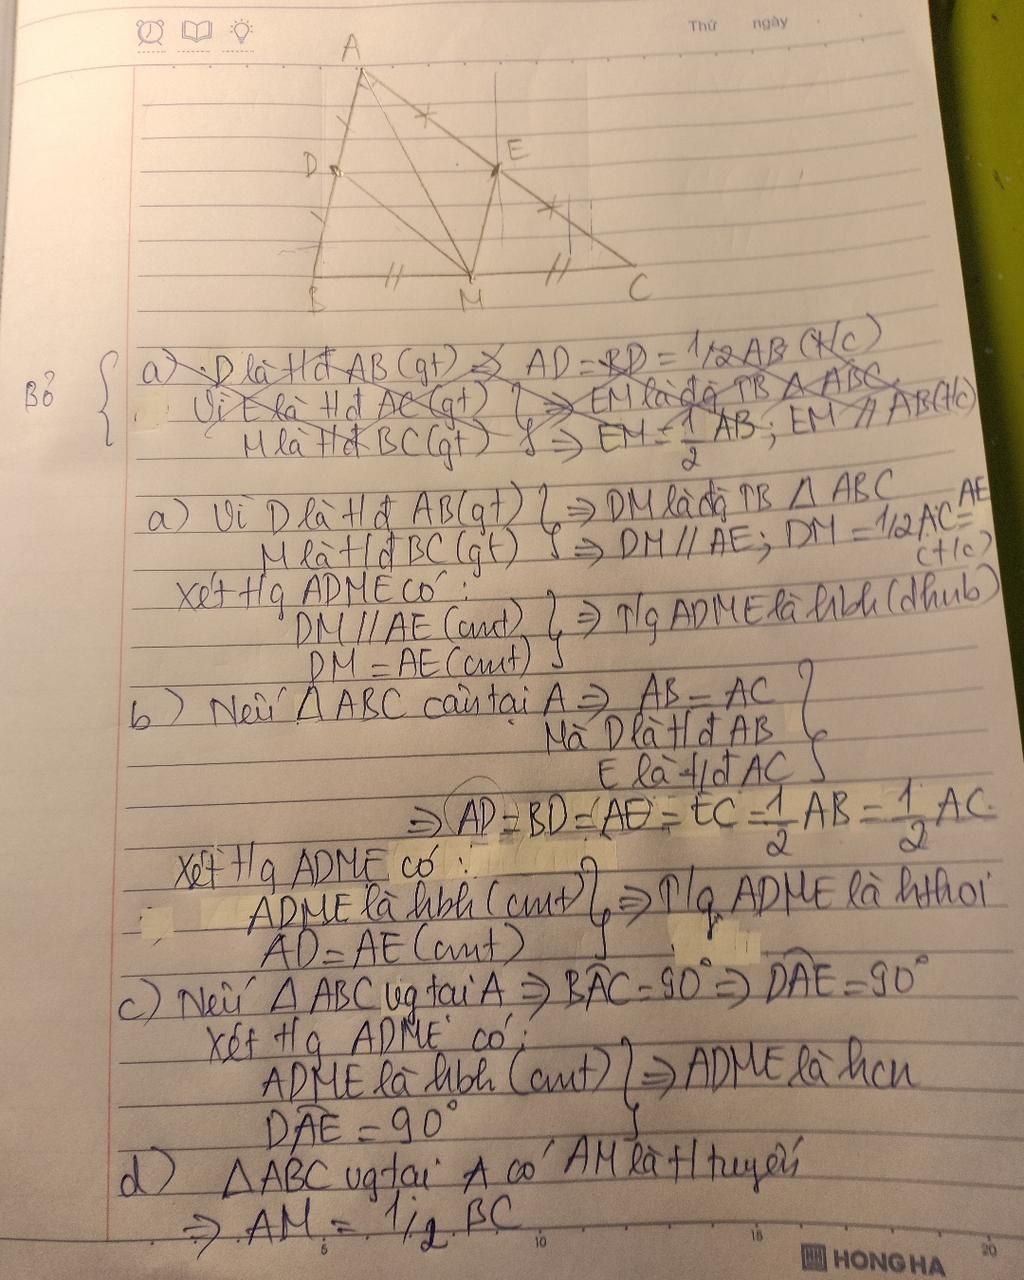 Thứ ngày
A
D
E
B
M
C
Bỏ
a) D là t/đ AB (gt) => AD = BD = 1/2 AB (t/c)
Vì E là t/đ AC (gt) } => EM là đg TB Δ ABC
M là t/đ BC (gt) => EM = 1/2 AB ; EM // AB (t/c)
a) Vì D là t/đ AB (gt) } => DM là đg TB Δ ABC
M là t/đ BC (gt) => DM // AE ; DM = 1/2 AC = AE (t/c)
Xét t/g ADME có :
DM // AE (cmt) } => T/g ADME là hbh (dhnb)
DM = AE (cmt)
b) Nếu Δ ABC cân tại A => AB = AC }
Mà D là t/đ AB
E là t/đ AC
=> AD = BD = AE = EC = 1/2 AB = 1/2 AC
Xét t/g ADME có :
ADME là hbh (cmt) } => T/g ADME là hthoi
AD = AE (cmt)
c) Nếu Δ ABC vg tại A => BÂC = 90° => DÂE = 90°
Xét t/g ADME có :
ADME là hbh (cmt) } => ADME là hcn
DÂE = 90°
d) Δ ABC vg tại A có AM là t/tuyến
=> AM = 1/2 BC
5 10 15 20
HONG HA